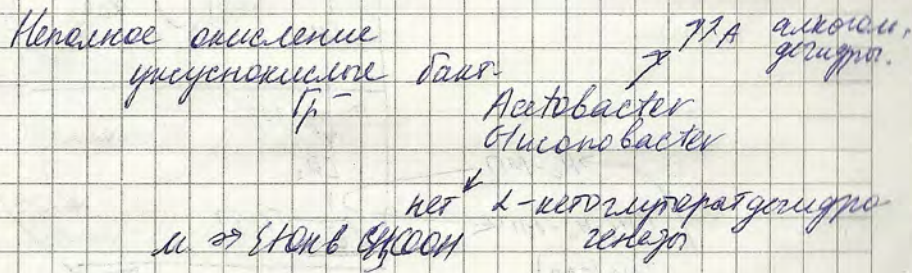 Неполное окисление
уксуснокислые бакт-
Гр⁻
↗↗A алкогольдегидр.
Acetobacter
Gluconobacter
нет α-кетоглутаратдегидро
геназы
и ⇒ EtOH в CH₃COOH